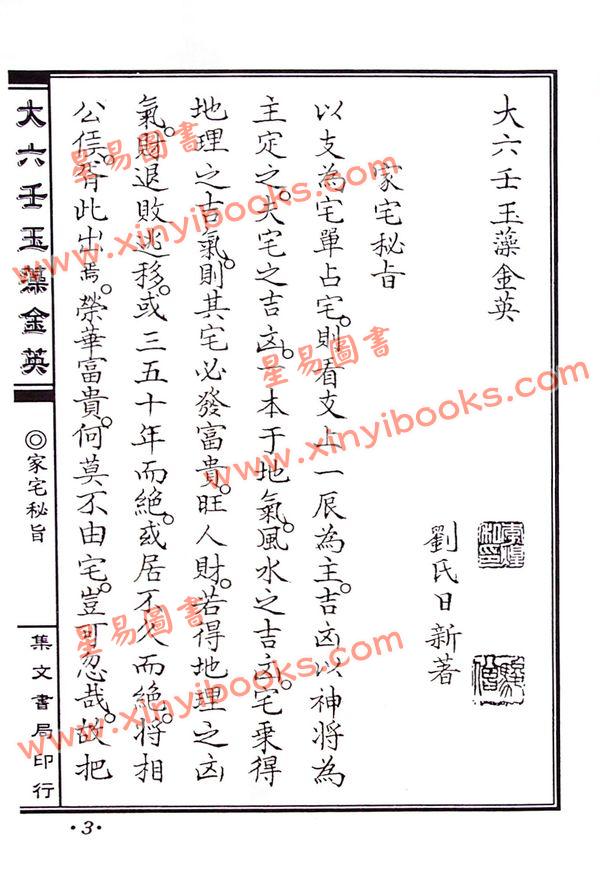 大六壬玉藻金英
劉氏日新著
家宅秘旨
以支為宅單占宅。則看支上一辰為主。吉凶以神將為
主定之。夫宅之吉凶。一本于地氣。風水之吉凶。宅乘得
地理之吉氣。則其宅必發富貴。旺人財。若得地理之凶
氣。財退敗逃移。或三五十年而絕。或居不久而絕。將相
公侯。胥此出焉。榮華富貴。何莫不由宅。豈可忽哉。故把
大六壬玉藻金英
◎家宅秘旨
集文書局印行
·3·
星易圖書
www.xinyibooks.com
星易圖書
www.xinyibooks.com
星易圖書
www.xinyibooks.com